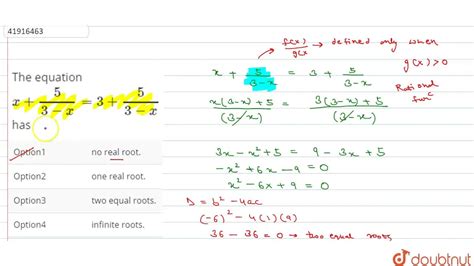 41916463
The equation
x + 5/(3 − x) = 3 + 5/(3 − x)
has
Option1 no real root.
Option2 one real root.
Option3 two equal roots.
Option4 infinite roots.
f(x)/g(x) → defined only when
g(x) > 0
Rational
funⁿ
x + 5/(3-x) = 3 + 5/(3-x)
x(3-x) + 5/(3-x) = 3(3-x) + 5/(3-x)
3x - x² + 5 = 9 - 3x + 5
- x² + 6x - 9 = 0
x² - 6x + 9 = 0
D = b² - 4ac
(-6)² - 4(1)(9)
36 - 36 = 0 → two equal roots
doubtnut